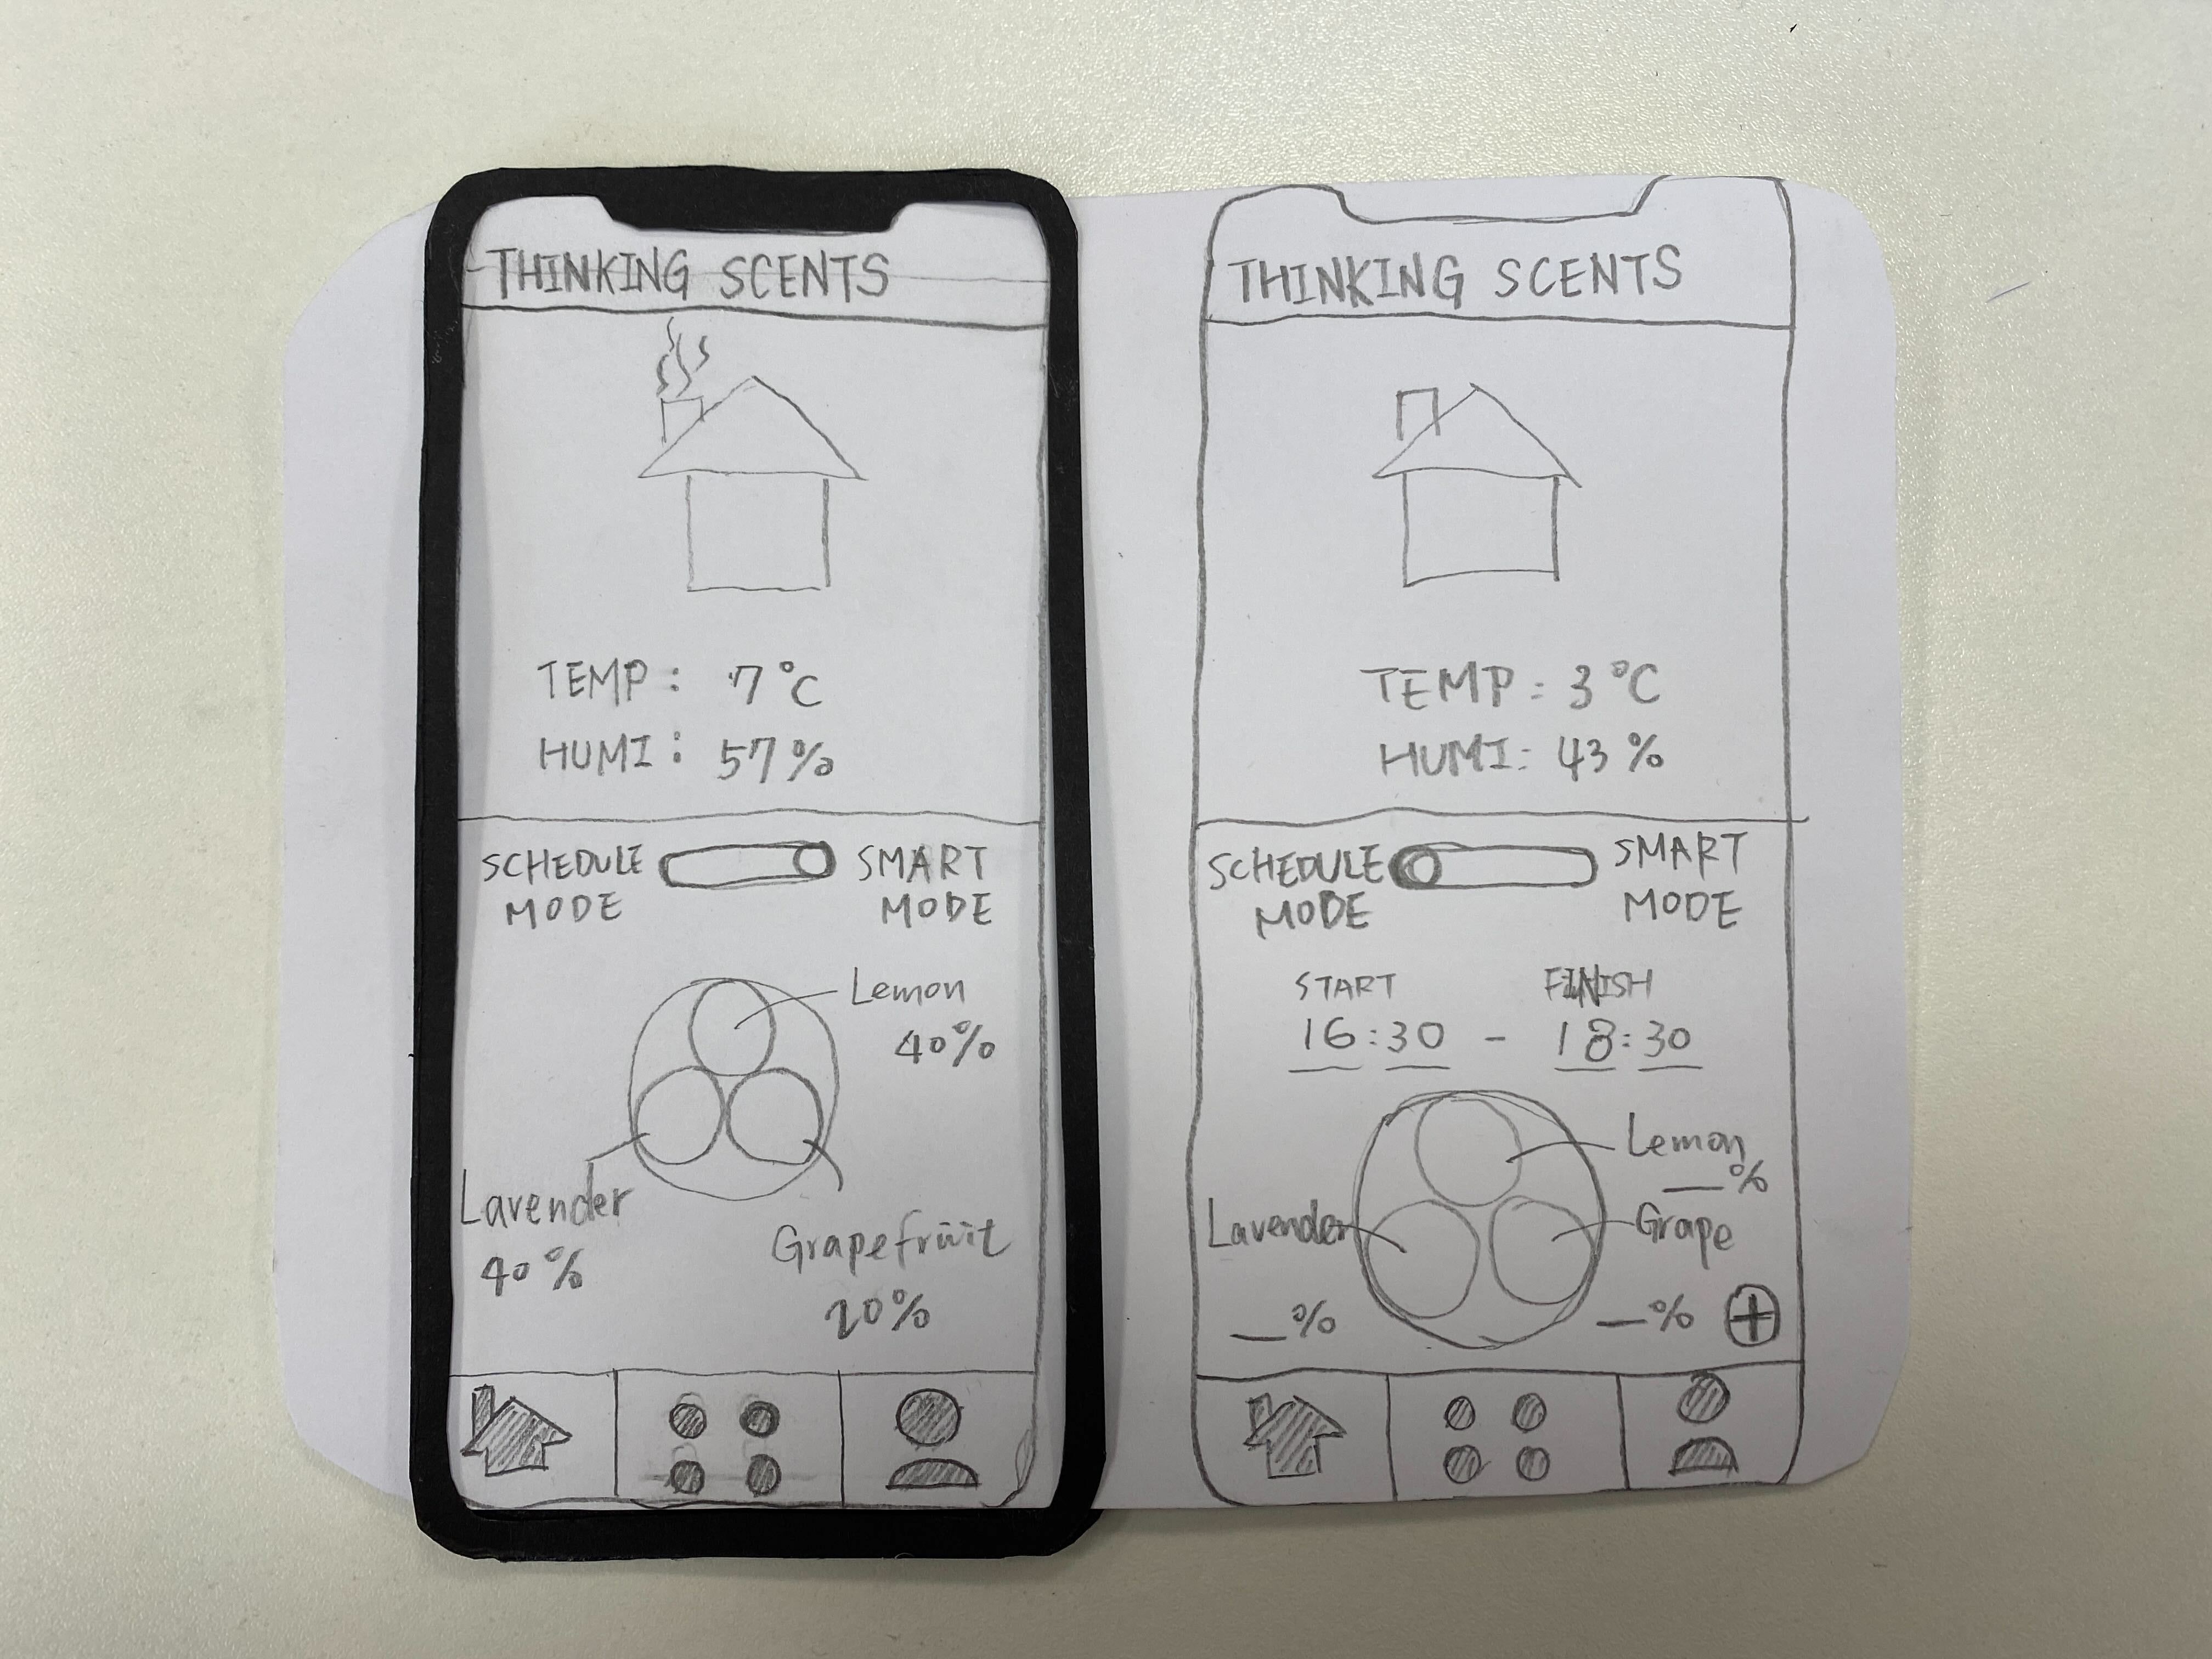 THINKING SCENTS
TEMP: 7°C
HUMI: 57%
SCHEDULE MODE
SMART MODE
Lemon
40%
Lavender
40%
Grapefruit
20%
THINKING SCENTS
TEMP: 3°C
HUMI: 43%
SCHEDULE MODE
SMART MODE
START
FINISH
16:30 - 18:30
Lemon
__%
Lavender
__%
Grape
__%
+